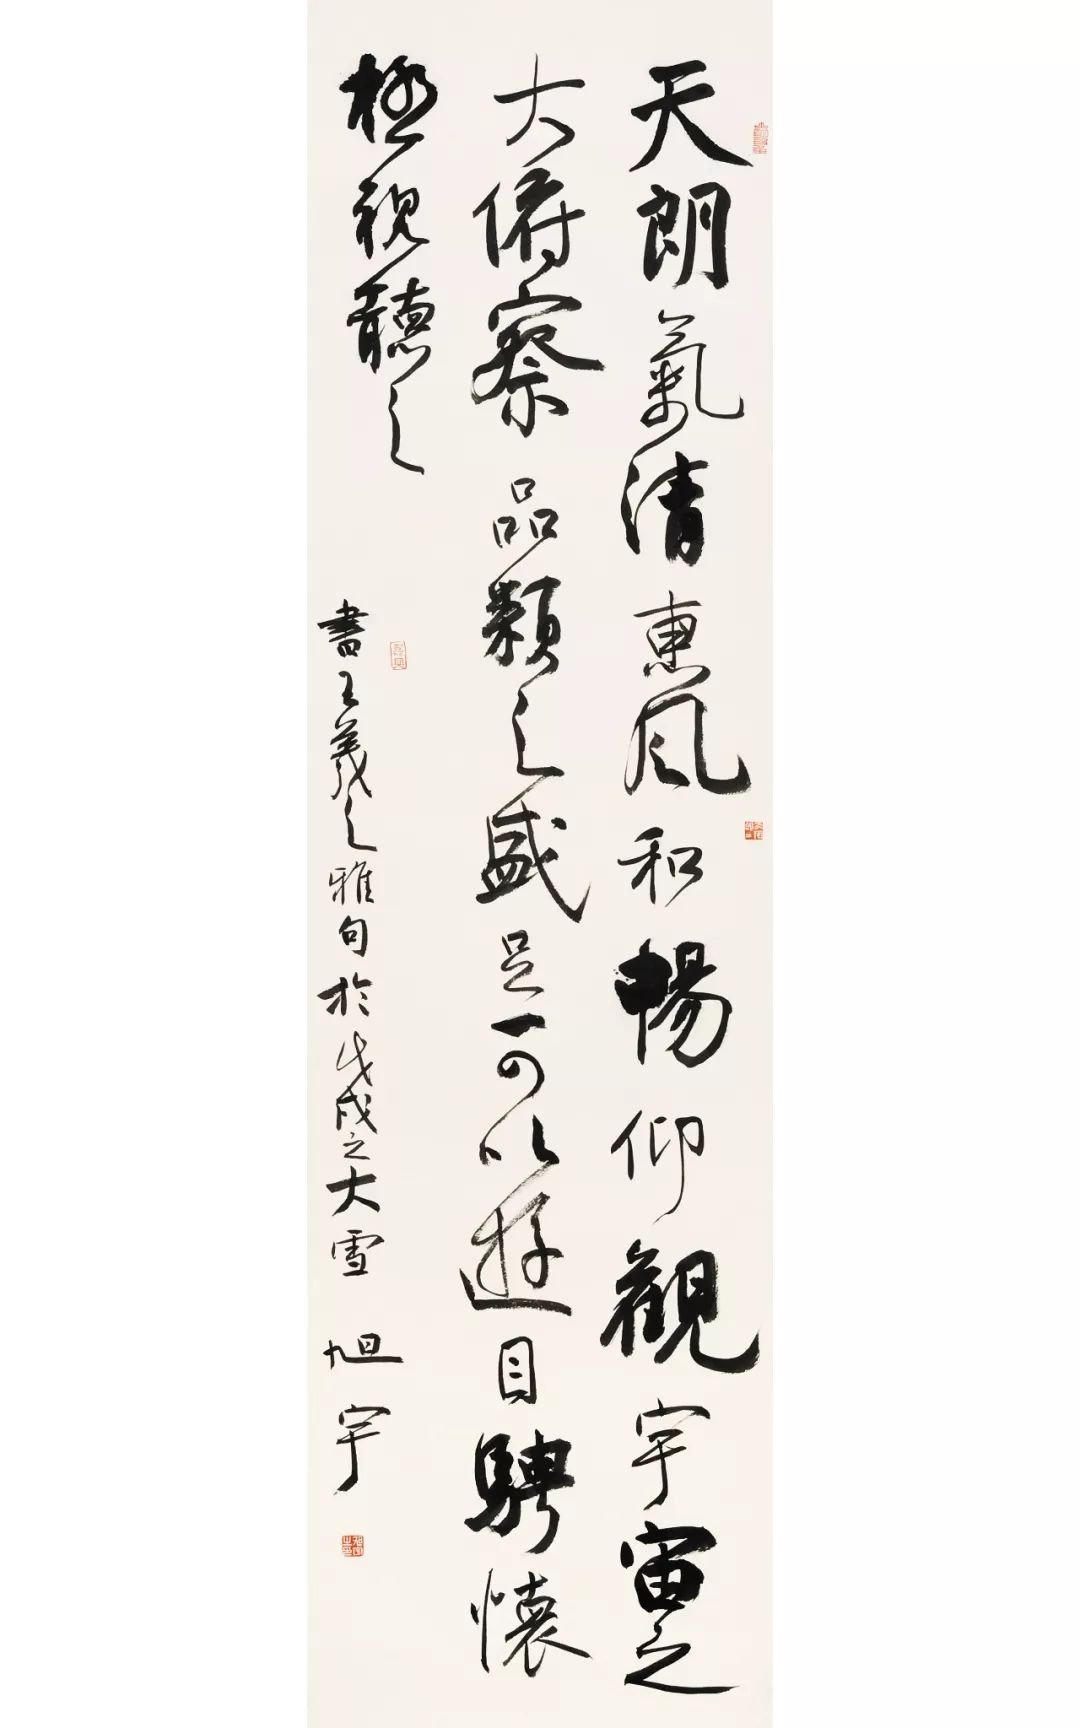 天朗氣清惠風和暢仰觀宇宙之
大俯察品類之盛足可以遊目騁懷
極視聽之
書王羲之雅句於戊戌之大雪 旭宇